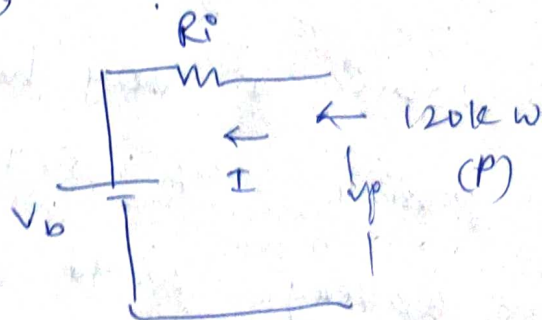 Ri
120k W
I
Vp
(P)
Vb